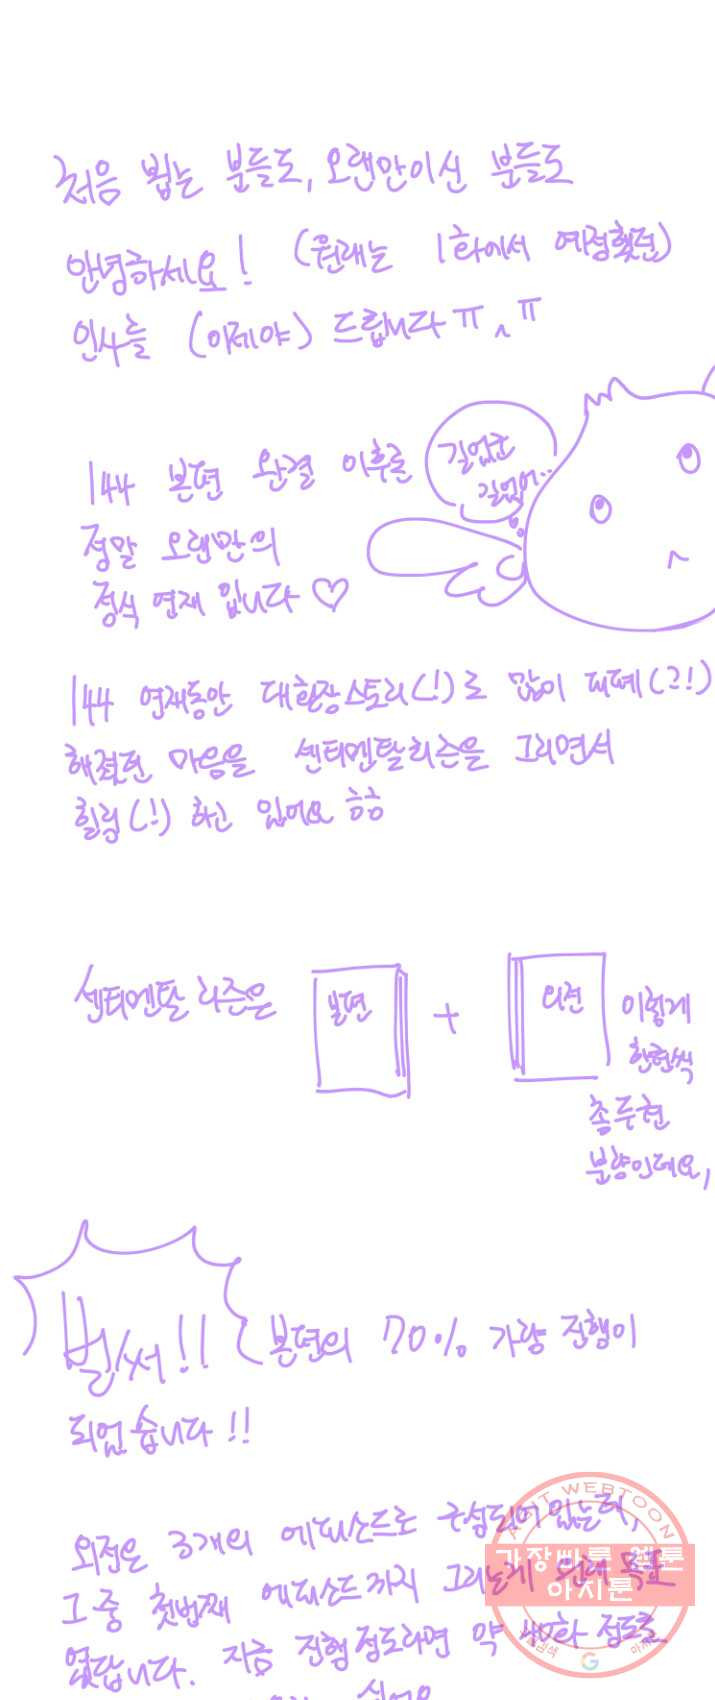 처음 뵙는 분들도, 오랜만이신 분들도
안녕하세요! (원래는 1화에서 예정했던)
인사를 (이제야) 드립니다 ㅠㅅㅠ
길었군
길었어..
144 본편 완결 이후로
정말 오랜만의
정식 연재 입니다 ♡
144 연재동안 대환장스토리(!)로 많이 피폐(?!)
해졌던 마음을 센티멘탈리즘을 그리면서
힐링(!) 하고 있어요 흐흐
센티멘탈리즘은
본편
+
외전
이렇게
한권씩
총두권
분량인데요,
벌써!! 본편의 70% 가량 진행이
되었습니다!!
외전은 3개의 에피소드로 구성되어있는데,
그 중 첫번째 에피소드까지 그리는게 원래 목표
였답니다. 지금 진행정도라면 약 40화 정도로
AGIT WEBTOON
가장빠른 웹툰
아지툰
G